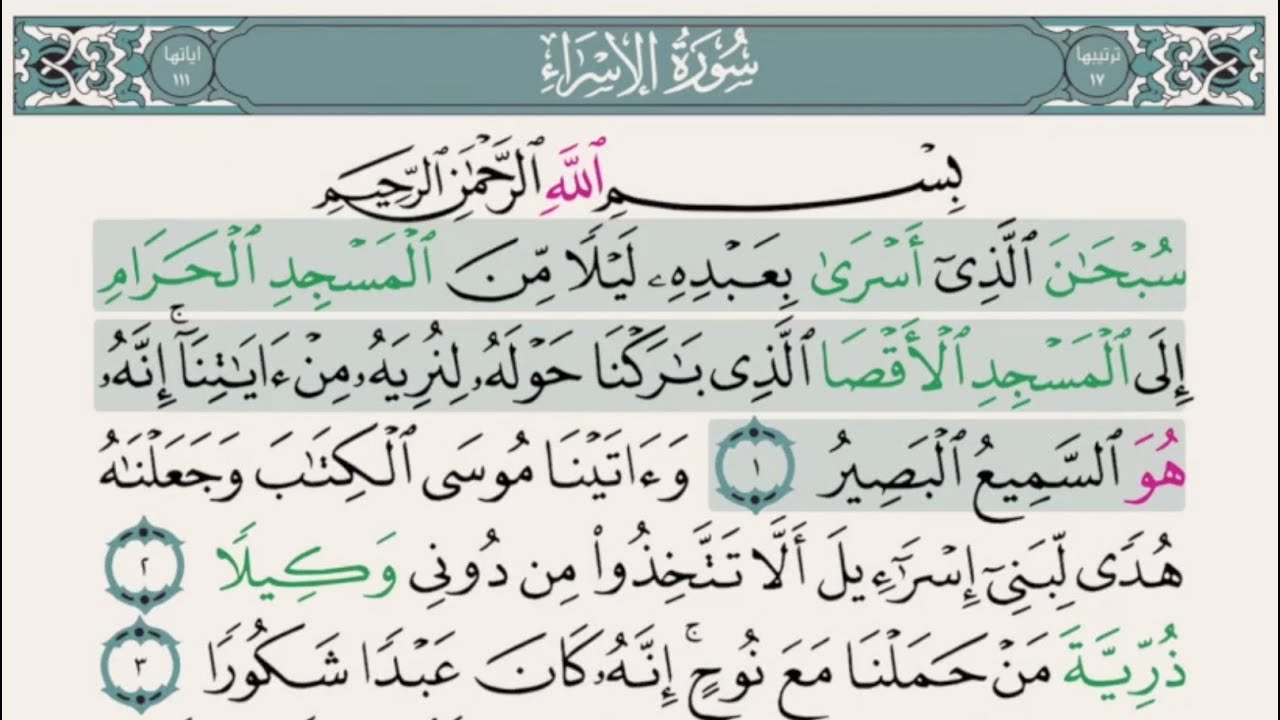 ترتيبها ١٧
سُورَةُ الإِسْرَاءِ
اياتها ١١١
بِسْمِ ٱللَّهِ ٱلرَّحْمَٰنِ ٱلرَّحِيمِ
سُبْحَٰنَ ٱلَّذِىٓ أَسْرَىٰ بِعَبْدِهِۦ لَيْلًا مِّنَ ٱلْمَسْجِدِ ٱلْحَرَامِ
إِلَى ٱلْمَسْجِدِ ٱلْأَقْصَا ٱلَّذِى بَٰرَكْنَا حَوْلَهُۥ لِنُرِيَهُۥ مِنْ ءَايَٰتِنَآ ۚ إِنَّهُۥ
هُوَ ٱلسَّمِيعُ ٱلْبَصِيرُ ١ وَءَاتَيْنَا مُوسَى ٱلْكِتَٰبَ وَجَعَلْنَٰهُ
هُدًى لِّبَنِىٓ إِسْرَٰٓءِيلَ أَلَّا تَتَّخِذُوا۟ مِن دُونِى وَكِيلًا ٢
ذُرِّيَّةَ مَنْ حَمَلْنَا مَعَ نُوحٍ ۚ إِنَّهُۥ كَانَ عَبْدًا شَكُورًا ٣